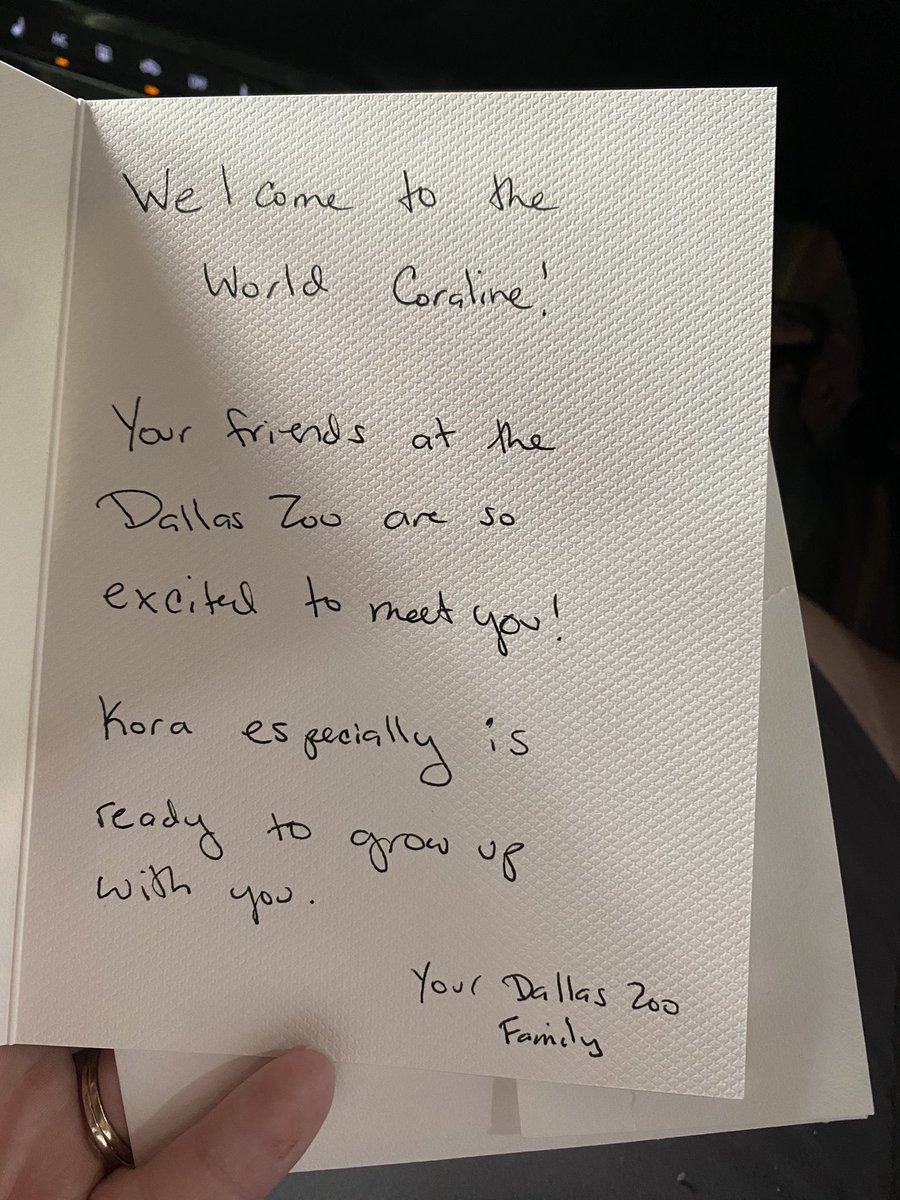 Welcome to the
World Coraline!
Your friends at the
Dallas Zoo are so
excited to meet you!
Kora especially is
ready to grow up
with you.
Your Dallas Zoo
Family